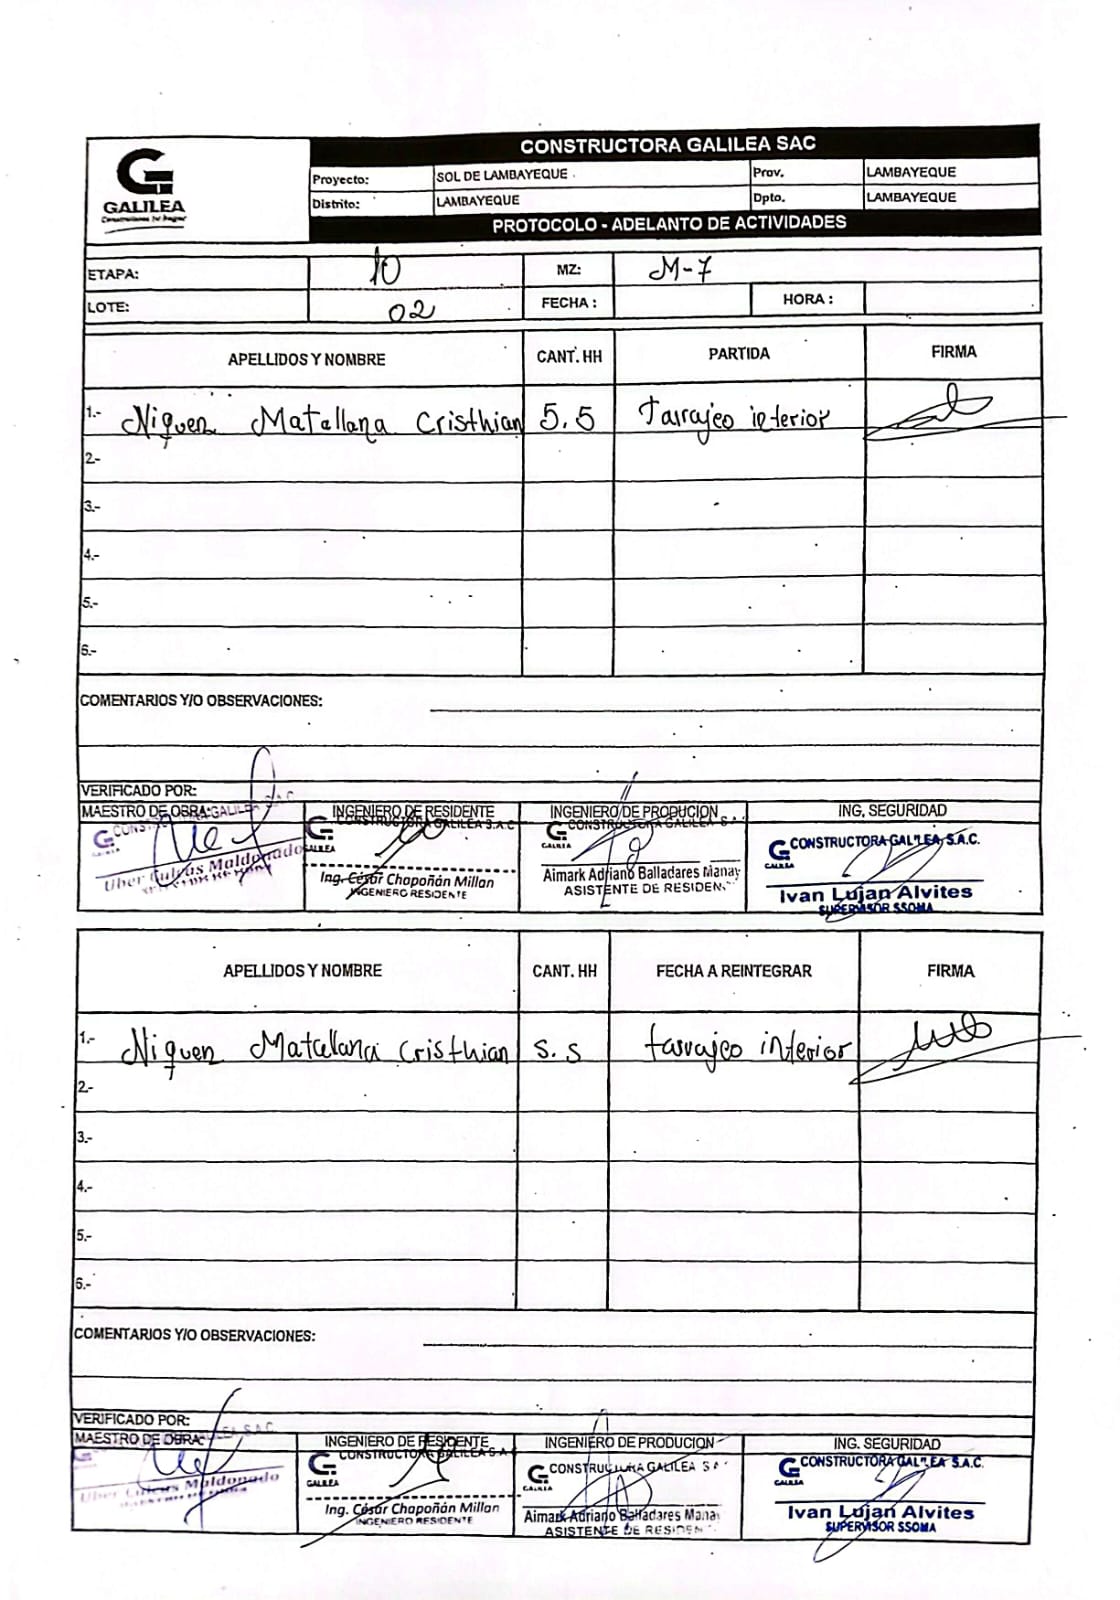 CONSTRUCTORA GALILEA SAC
GALILEA
Proyecto: SOL DE LAMBAYEQUE Prov. LAMBAYEQUE
Distrito: LAMBAYEQUE Dpto. LAMBAYEQUE
PROTOCOLO - ADELANTO DE ACTIVIDADES
ETAPA: 10 MZ: M-7
LOTE: 02 FECHA : HORA :
APELLIDOS Y NOMBRE CANT. HH PARTIDA FIRMA
1.- Niquen Matallana Cristhian 5.5 Tarrajeo interior
2.-
3.-
4.-
5.-
6.-
COMENTARIOS Y/O OBSERVACIONES:
VERIFICADO POR:
MAESTRO DE OBRA: INGENIERO DE RESIDENTE INGENIERO DE PRODUCION ING. SEGURIDAD
CONSTRUCTORA GALILEA S.A.C CONSTRUCTORA GALILEA CONSTRUCTORA GALILEA S.A.C.
GALILEA GALILEA GALILEA
Uber Maldonado Ing. César Chapoñán Millan Aimark Adriano Balladares Manay Ivan Lujan Alvites
INGENIERO RESIDENTE ASISTENTE DE RESIDEN SUPERVISOR SSOMA
APELLIDOS Y NOMBRE CANT. HH FECHA A REINTEGRAR FIRMA
1.- Niquen Matallana Cristhian 5.5 tarrajeo interior
2.-
3.-
4.-
5.-
6.-
COMENTARIOS Y/O OBSERVACIONES:
VERIFICADO POR:
MAESTRO DE OBRA: INGENIERO DE RESIDENTE INGENIERO DE PRODUCION ING. SEGURIDAD
CONSTRUCTORA GALILEA S.A.C CONSTRUCTORA GALILEA CONSTRUCTORA GALILEA S.A.C.
GALILEA GALILEA GALILEA
Uber Maldonado Ing. César Chapoñán Millan Aimark Adriano Balladares Manay Ivan Lujan Alvites
INGENIERO RESIDENTE ASISTENTE DE RESIDEN SUPERVISOR SSOMA